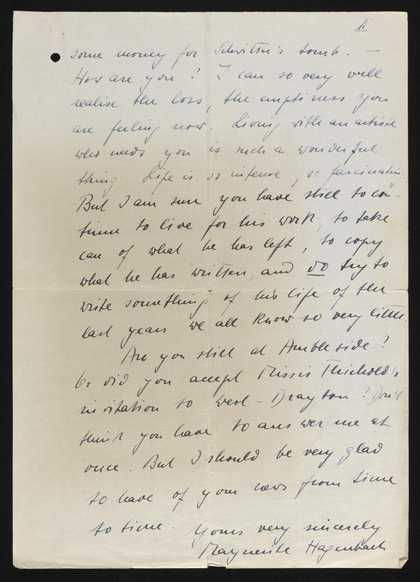 II.
some money for Schwitters's tomb. —
How are you? I can so very well
realise the loss, the emptiness you
are feeling now. Living with an artist
who needs you is such a wonderful
thing. Life is so intense, so fascinating.
But I am sure you have still to con-
tinue to live for his work, to take
care of what he has left, to copy
what he has written, and do try to
write something of his life of the
last years we all know so very little.
Are you still at Ambleside?
Or did you accept Missis Thichold's
invitation to West-Drayton? Don't
think you have to answer me at
once. But I should be very glad
to have of your news from time
to time. Yours very sincerely
Marguerite Hagenbach